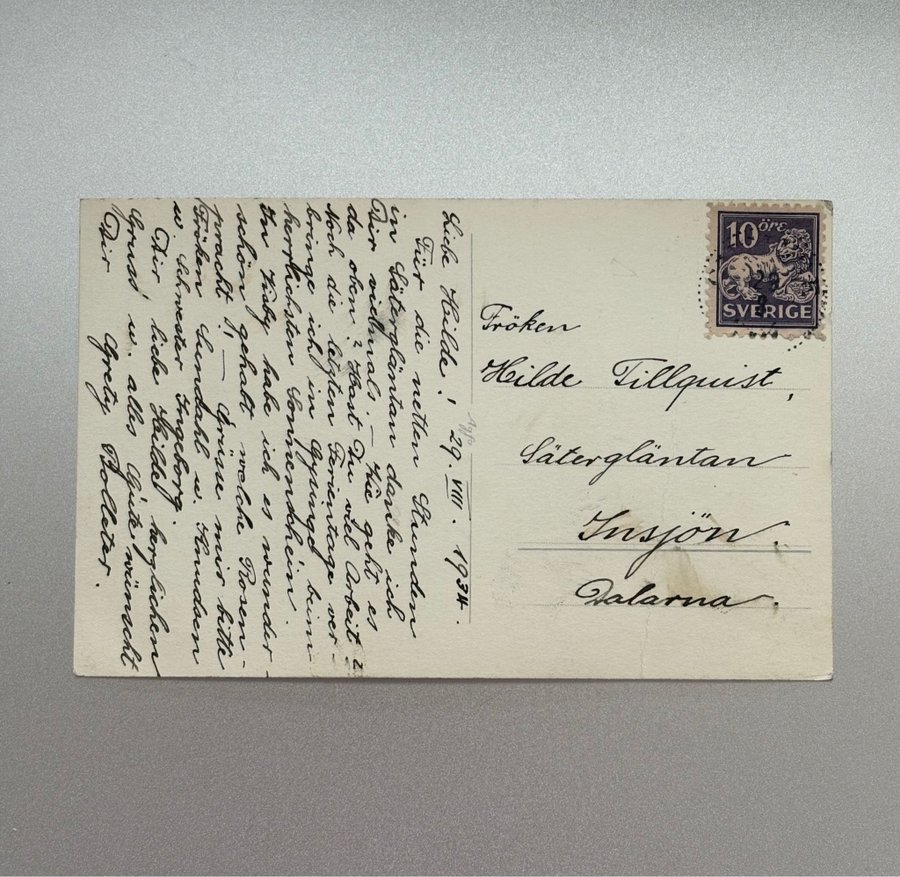 Liebe Hilde! 29. VIII. 1934.
Für die netten Stunden
in Säterglänten danke ich
Dir vielmals. — Wie geht es
da oben? Hast Du viel Arbeit?
Noch die letzten Ferientage ver-
bringe ich in Gysinge beim
herrlichsten Sonnenschein.
In Visby habe ich es wunder-
schön gehabt, welche Rosen-
pracht! — Grüsse mir bitte
Fröken Lundahl u. Knudsen
u Schwester Ingeborg.
Dir liebe Hilde herzlichen
Gruss u. alles Gute wünscht
Dir Grety Bolleter.
10 ÖRE
SVERIGE
Fröken
Hilde Tillquist,
Sätergläntan
Insjön.
Dalarna.